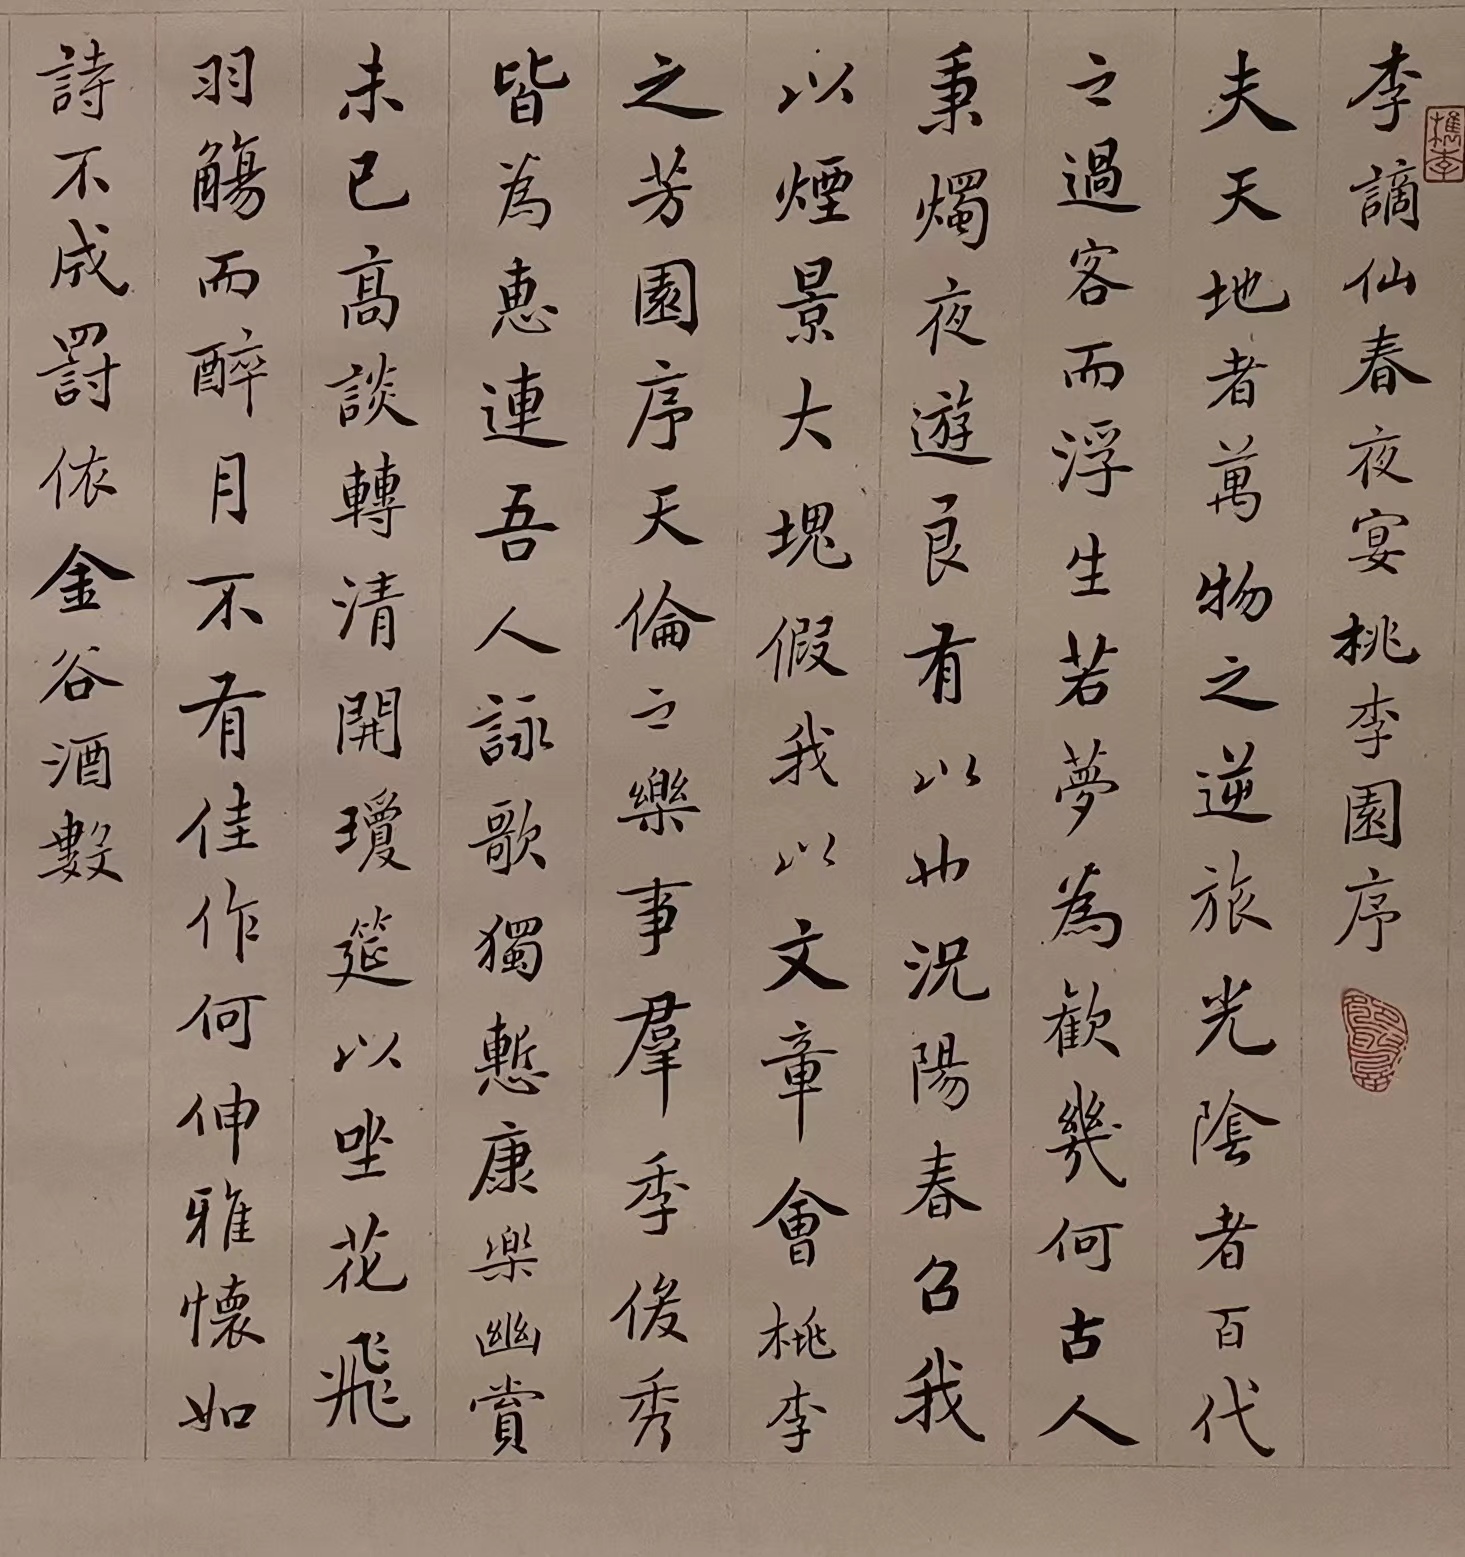 李謫仙春夜宴桃李園序
夫天地者萬物之逆旅光陰者百代
之過客而浮生若夢為歡幾何古人
秉燭夜遊良有以也況陽春召我
以煙景大塊假我以文章會桃李
之芳園序天倫之樂事羣季俊秀
皆為惠連吾人詠歌獨慙康樂幽賞
未已高談轉清開瓊筵以坐花飛
羽觴而醉月不有佳作何伸雅懷如
詩不成罰依金谷酒數
檇李